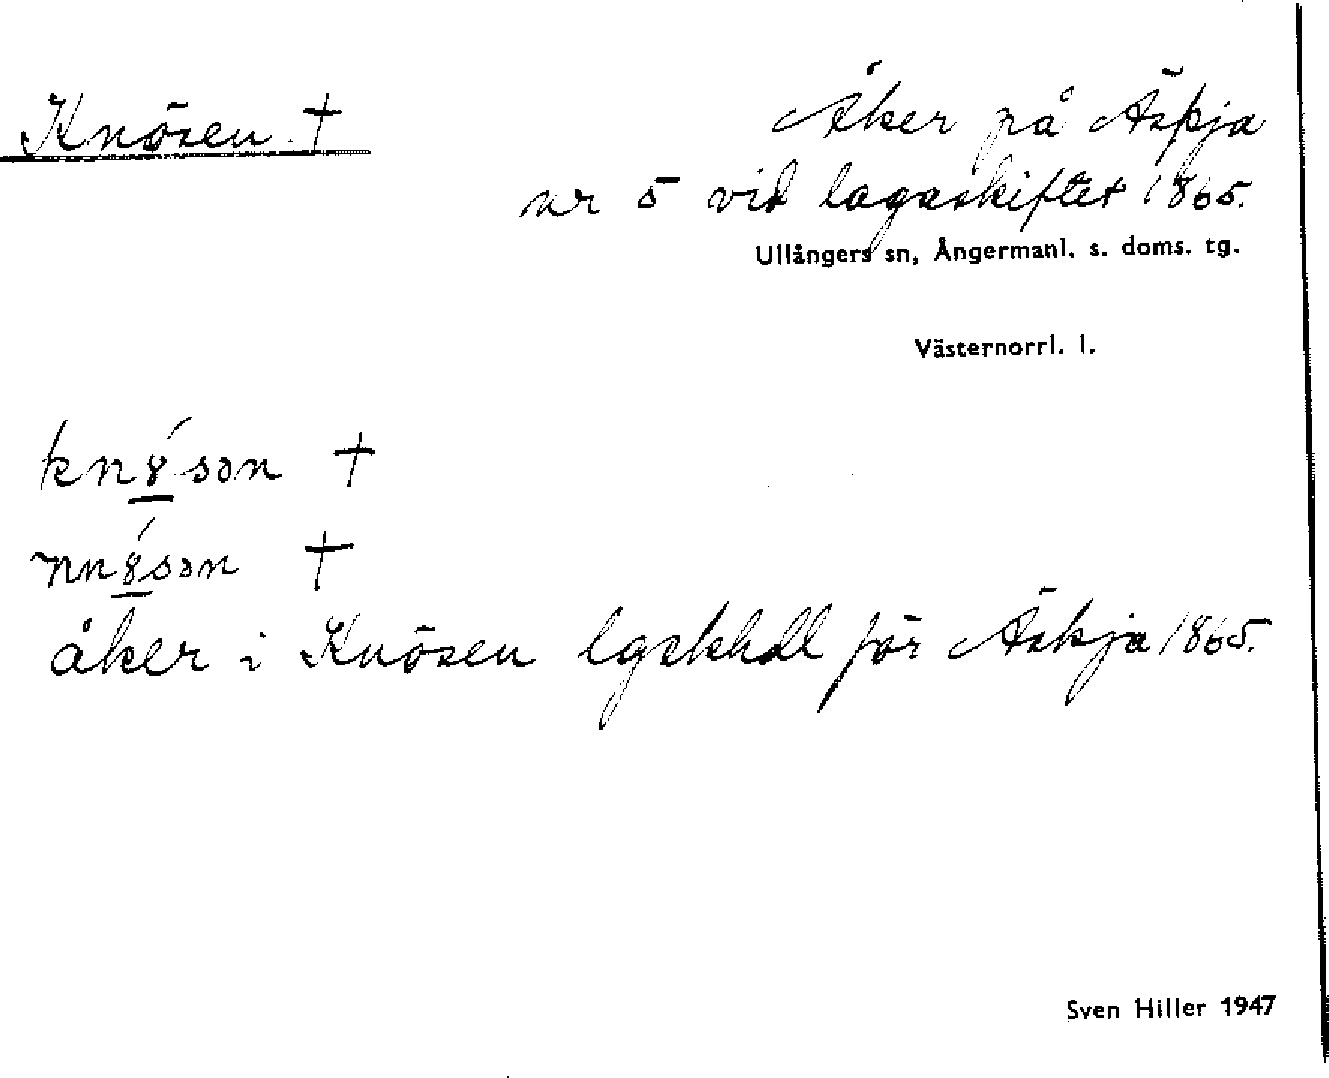 Knösen †
Åker på Äskja
nr 5 vid lagaskiftet 1865.
Ullångers sn, Ångermanl. s. doms. tg.
Västernorrl. l.
kn8́sən †
nn8́sən †
åker i Knösen lgskhdl för Äskja 1865.
Sven Hiller 1947